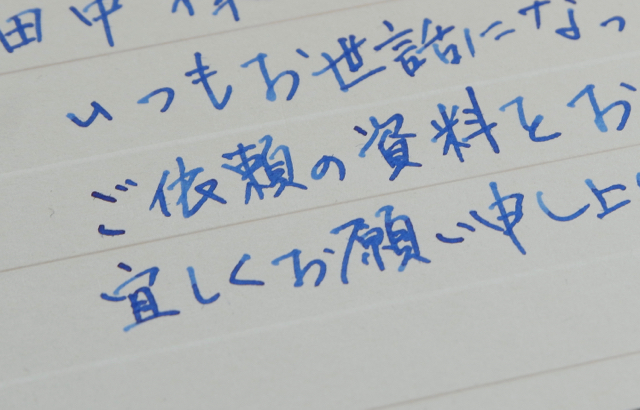 田中
いつもお世話になっ
ご依頼の資料をお
宜しくお願い申し上